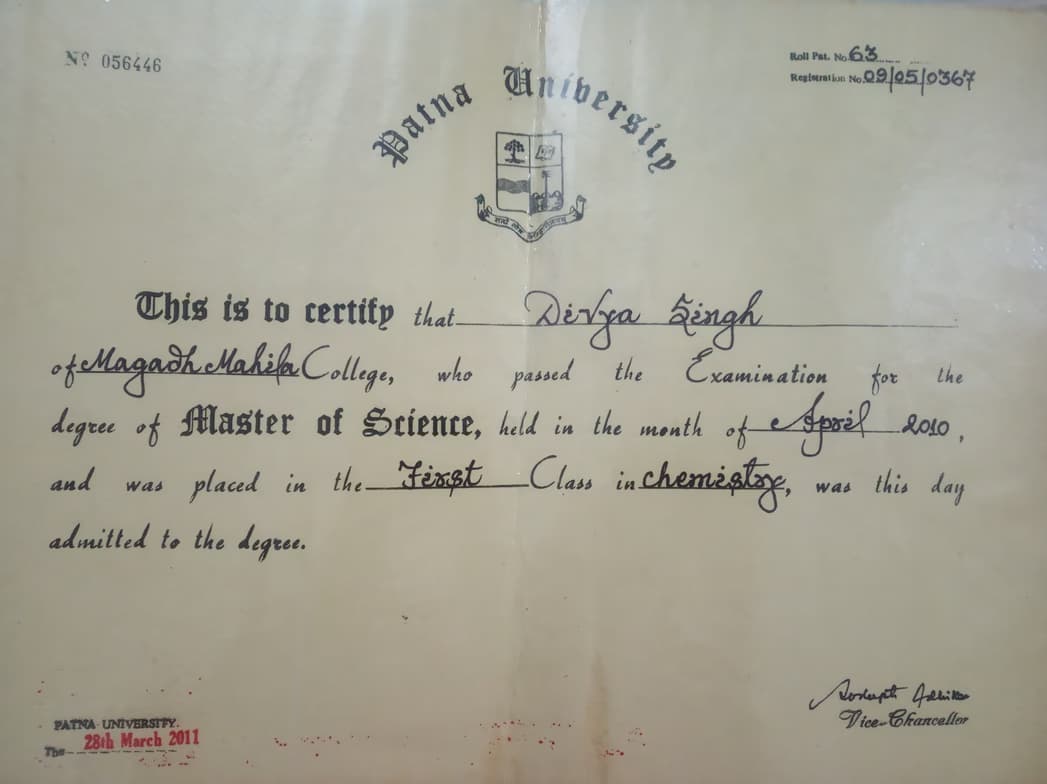 Nº 056446
Roll Pat. No. 63
Registration No. 09/05/0367
Patna University
This is to certify that Divya Singh
of Magadh Mahila College, who passed the Examination for the
degree of Master of Science, held in the month of April 2010,
and was placed in the First Class in chemistry, was this day
admitted to the degree.
PATNA UNIVERSITY.
The 28th March 2011
Vice-Chancellor